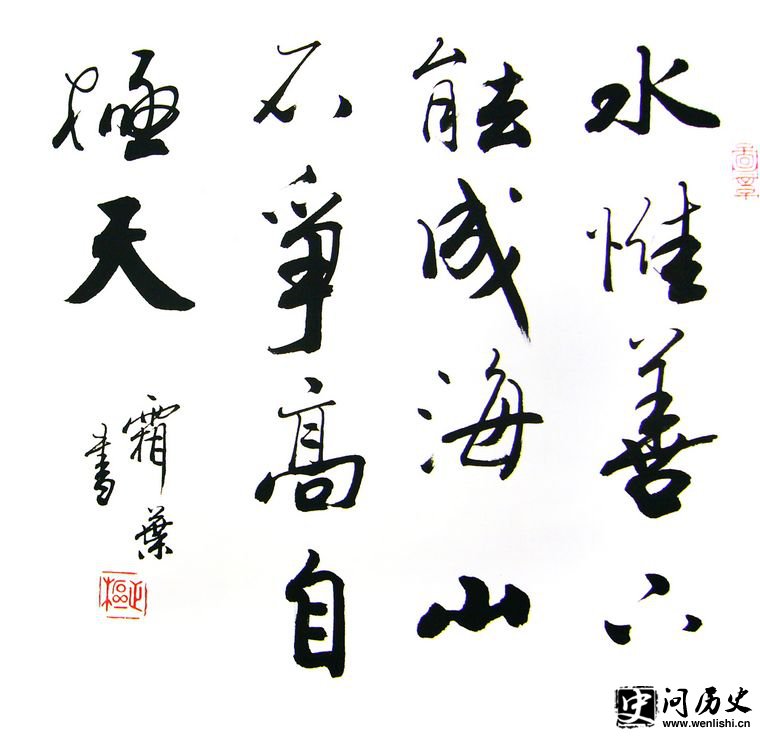 水惟善下
能成海山
不爭高自
極天
霜葉
書
问历史
www.wenlishi.cn